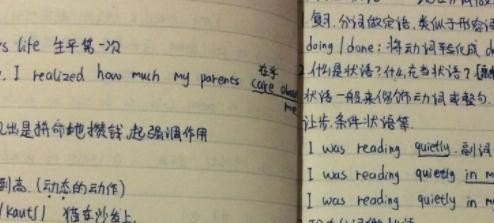 's life 生平第一次
. I realized how much my parents care about
在乎
me
出是拼命地攒钱,起强调作用
到高.(动态的动作)
猫在沙发上.
复习.分词做定语,类似于形容词
doing / done : 将动词转化成
2.什么是状语?什么充当状语?
状语一般来修饰动词或整句.
让步.条件状语等.
I was reading quietly. 副词
I was reading quietly in m
I was reading quietly in m